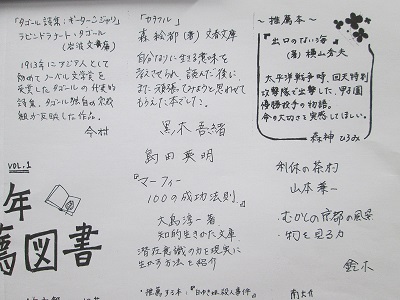 「タゴール詩集:ギーターンジャリ」
ラビンドラナート・タゴール
(岩波文庫)
1913年にアジア人として
初めてノーベル文学賞を
受賞したタゴールの代表的
詩集。タゴール独自の宗教
観が反映した作品。
今村
「カラフル」
森 絵都 (著) 文春文庫
自分なりに生きる意味を
考えさせられ、読んだ後に、
また頑張ってみようと思わせて
もらえた本でした。
黒木 吾緒
島田 英明
『マーフィー
100の成功法則』
大島淳一 著
知的生きかた文庫
潜在意識の力を現実に
生かす方法を紹介
～推薦本～
『出口のない海』
(著) 横山秀夫
太平洋戦争時、回天特別
攻撃隊で出撃した、甲子園
優勝投手の物語。
今の大切さを実感してほしい。
森神 ひろみ
利休の茶杓
山本 兼一
・むかしの京都の風景
・物を見る力
鈴木
VOL.1
年
薦図書
・推薦する本:『
殺人事件』